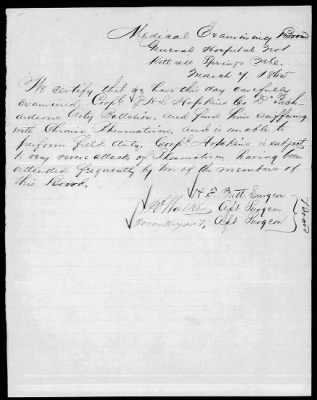 Medical Examining Board
General Hospital No 1
Kittrell Springs N.C.
March 7 1865
We certify that we have this day carefully
examined Corpl J H Hopkins Co D Rich
ardsons Arty Battalion, and find him suffering
with Chronic Rheumatism, and is unable to
perform field duty. Corpl Hopkins is subject
to very severe attacks of Rheumatism having been
attended frequently by two of the members of
this Board.
Batt Surgeon
Asst Surgeon
Asst Surgeon
Board